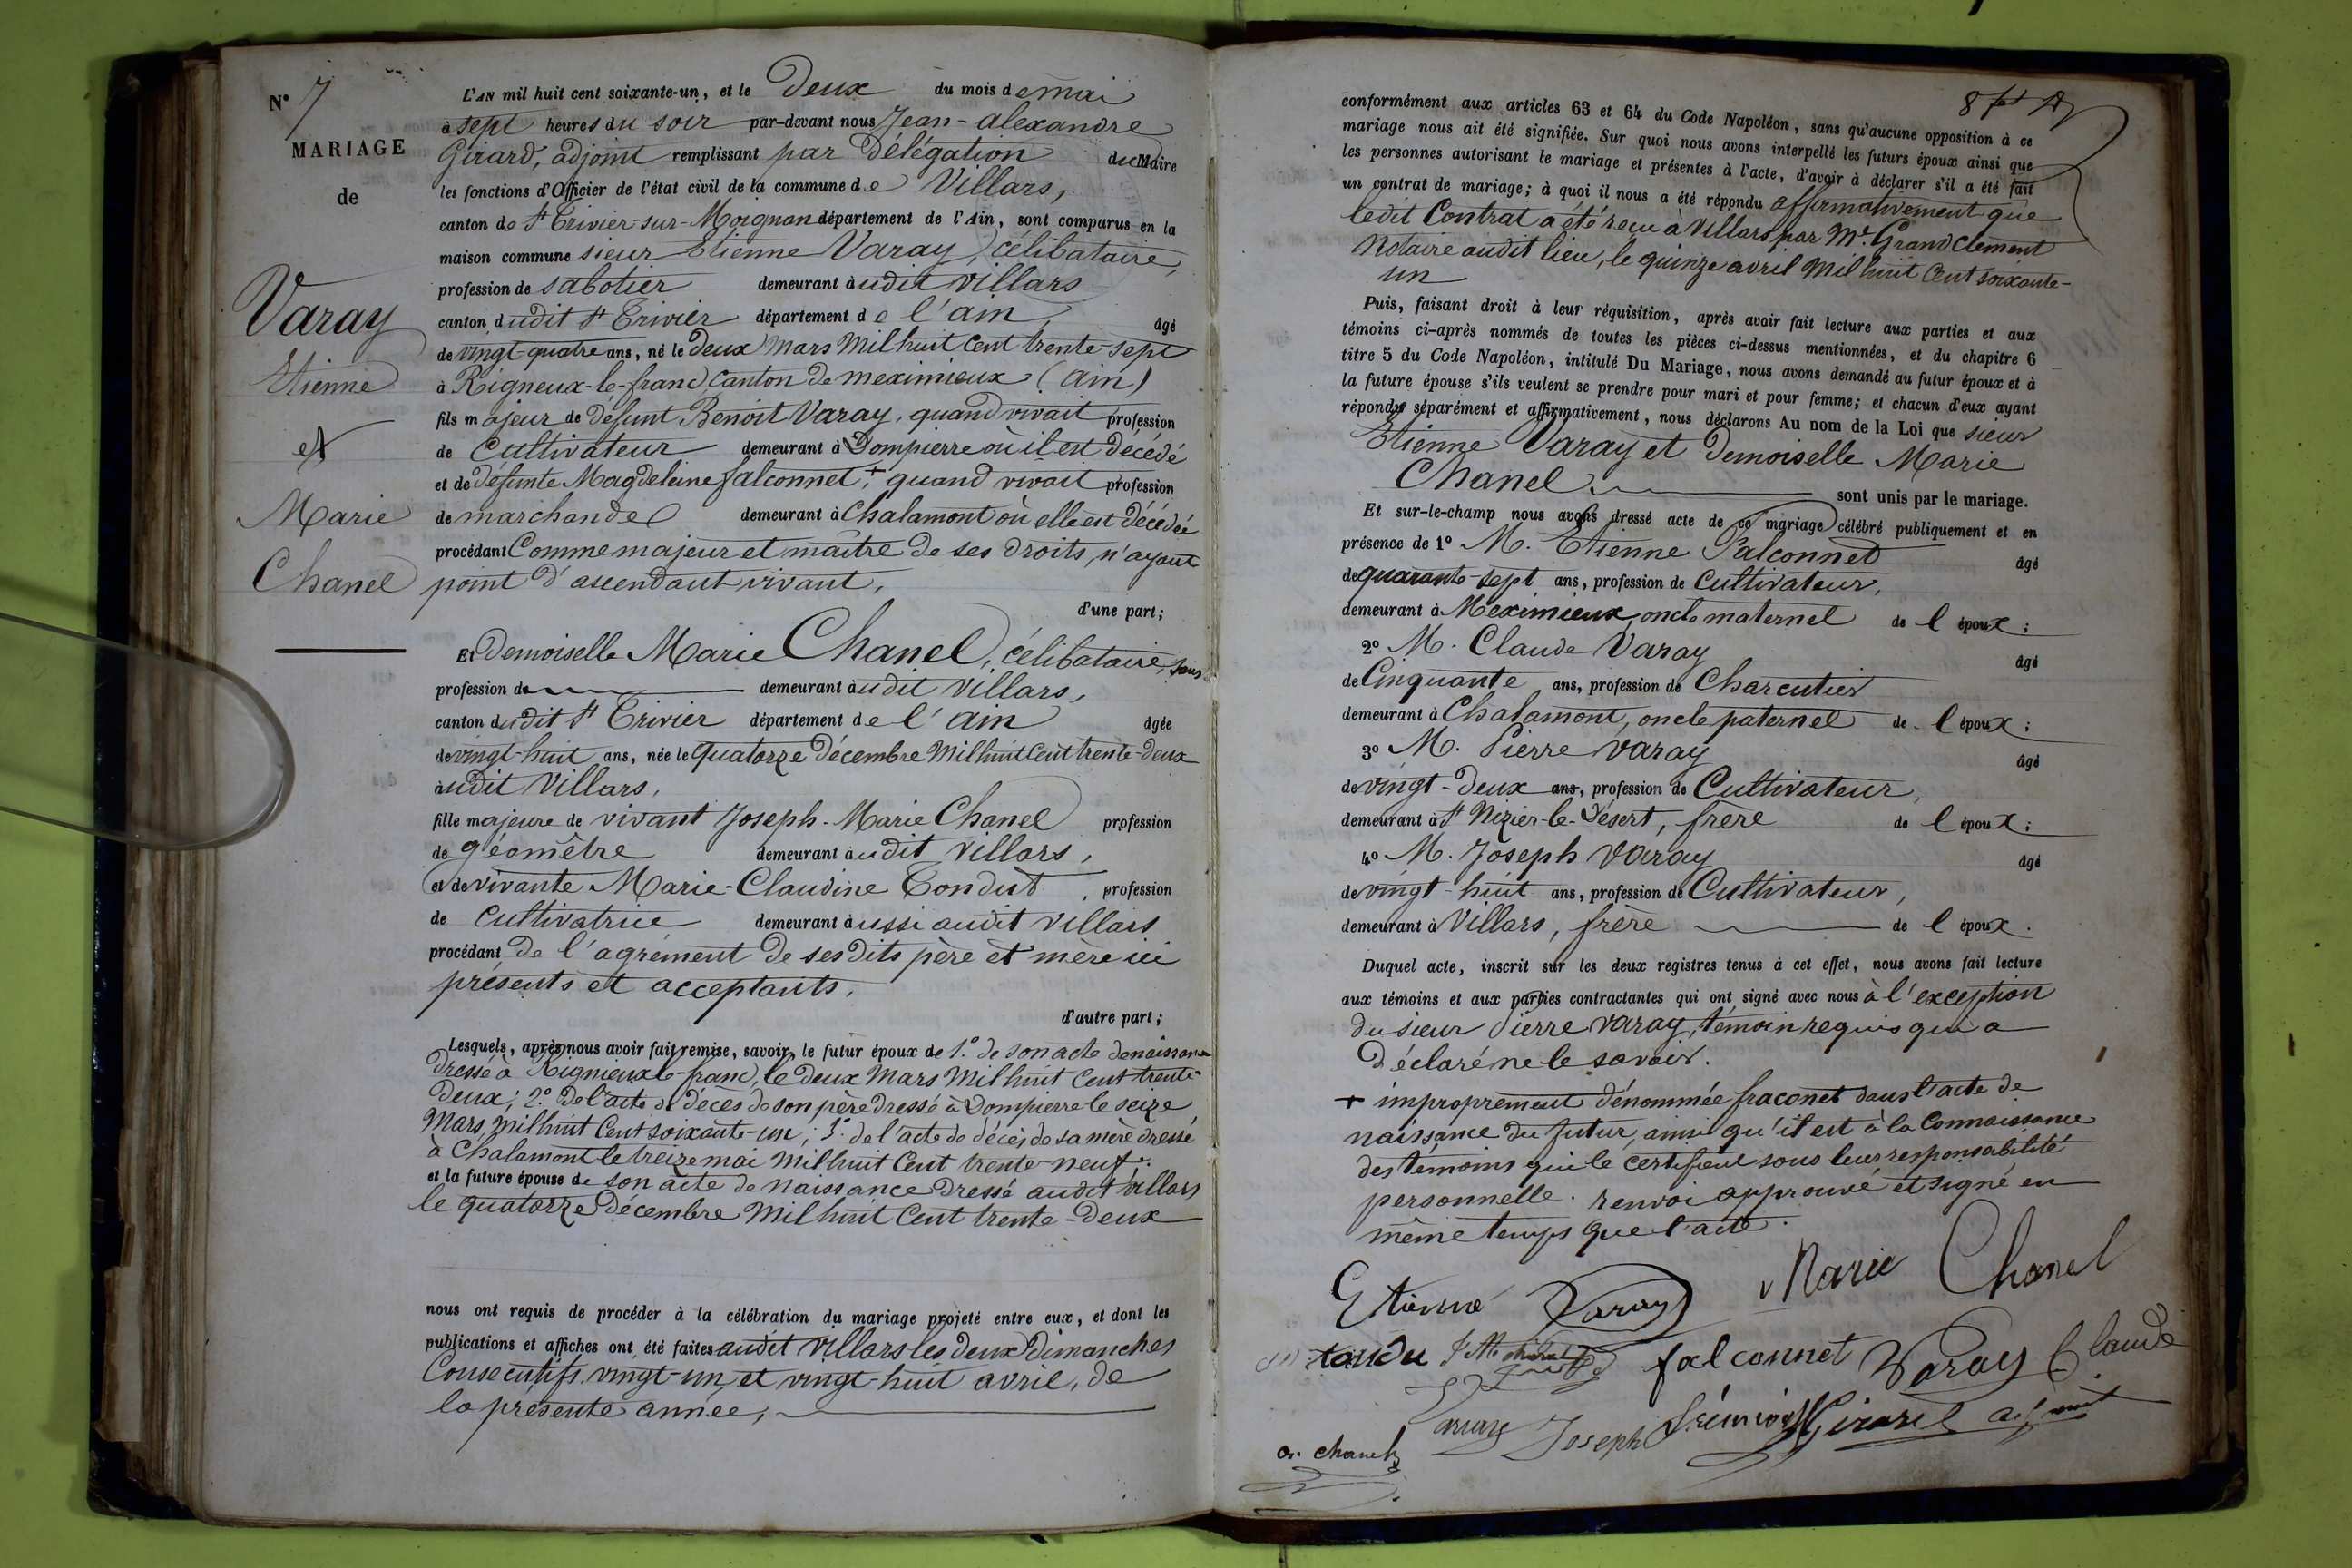 N° 7
MARIAGE
de
Varay
Etienne
et
Marie
Chanel
L'AN mil huit cent soixante-un, et le Deux du mois de mai
à sept heures du soir par-devant nous Jean-alexandre
Girard, adjoint remplissant par Délégation du Maire
les fonctions d'Officier de l'état civil de la commune de Villars,
canton de St Trivier-sur-Moignan département de l'Ain, sont comparus en la
maison commune sieur Etienne Varay, célibataire,
profession de sabotier demeurant audit villars
canton dudit St Trivier département de l'ain âgé
de vingt-quatre ans, né le Deux Mars Mil huit Cent trente-sept
à Rigneux-le-franc Canton de meximieux (ain)
fils majeur de Défunt Benoit Varay, quand vivait profession
de Cultivateur demeurant à Dompierre où il est Décédé
et de Défunte Magdeleine falconnet, + quand vivait profession
de marchande demeurant à Chalamont où elle est Décédée
procédant Comme majeur et maître de ses Droits, n'ayant
point d'ascendant vivant,
d'une part;
Et Demoiselle Marie Chanel, célibataire, sans
profession de demeurant audit Villars,
canton dudit St Trivier département de l'ain âgée
de vingt-huit ans, née le quatorze Décembre Mil huit Cent trente-Deux
audit Villars,
fille majeure de vivant Joseph-Marie Chanel profession
de géomètre demeurant audit Villars,
et de vivante Marie-Claudine Condut, profession
de Cultivatrice demeurant aussi audit Villars
procédant de l'agrément de ses Dits père et mère ici
présents et acceptants,
d'autre part;
Lesquels, après nous avoir fait remise, savoir, le futur époux de 1° de son acte de naissance
Dressé à Rignieux le-franc, le Deux Mars Mil huit Cent trente-
Deux; 2° De l'acte de Décès de son père Dressé à Dompierre le seize
Mars Mil huit Cent soixante-un; 3° de l'acte de Décès de sa mère dressé
à Chalamont le treize mai Mil huit Cent trente-neuf;
et la future épouse de son acte de naissance Dressé audit Villars
le quatorze Décembre Mil huit Cent trente-Deux
nous ont requis de procéder à la célébration du mariage projeté entre eux, et dont les
publications et affiches ont été faites audit Villars les Deux Dimanches
Consécutifs vingt-un et vingt-huit avril, de
la présente année,
8
conformément aux articles 63 et 64 du Code Napoléon, sans qu'aucune opposition à ce
mariage nous ait été signifiée. Sur quoi nous avons interpellé les futurs époux ainsi que
les personnes autorisant le mariage et présentes à l'acte, d'avoir à déclarer s'il a été fait
un contrat de mariage; à quoi il nous a été répondu affirmativement que
ledit Contrat a été reçu à Villars par Me. Grandclement
Notaire audit lieu, le quinze avril Mil huit Cent soixante-
un
Puis, faisant droit à leur réquisition, après avoir fait lecture aux parties et aux
témoins ci-après nommés de toutes les pièces ci-dessus mentionnées, et du chapitre 6
titre 5 du Code Napoléon, intitulé Du Mariage, nous avons demandé au futur époux et à
la future épouse s'ils veulent se prendre pour mari et pour femme; et chacun d'eux ayant
répondu séparément et affirmativement, nous déclarons Au nom de la Loi que sieur
Etienne Varay et Demoiselle Marie
Chanel sont unis par le mariage.
Et sur-le-champ nous avons dressé acte de ce mariage célébré publiquement et en
présence de 1° M. Etienne Falconnet âgé
de quarante-sept ans, profession de Cultivateur,
demeurant à Meximieux, oncle maternel de l'époux;
2° M. Claude Varay âgé
de Cinquante ans, profession de Charcutier
demeurant à Chalamont, oncle paternel de l'époux;
3° M. Pierre Varay âgé
de vingt-Deux ans, profession de Cultivateur,
demeurant à St Nizier-le-Désert, frère de l'époux;
4° M. Joseph Varay âgé
de vingt-huit ans, profession de Cultivateur,
demeurant à Villars, frère de l'époux.
Duquel acte, inscrit sur les deux registres tenus à cet effet, nous avons fait lecture
aux témoins et aux parties contractantes qui ont signé avec nous à l'exception
du sieur Pierre Varay, témoin requis qui a
Déclaré ne le savoir.
+ improprement dénommée fraconet dans l'acte de
naissance du futur, ainsi qu'il est à la Connaissance
des témoins qui le certifient sous leur responsabilité
personnelle. renvoi approuvé et signé en
même temps que l'acte.
Etienne Varay Marie Chanel
falconnet Varay Claude
Joseph Girard adjoint
chanel